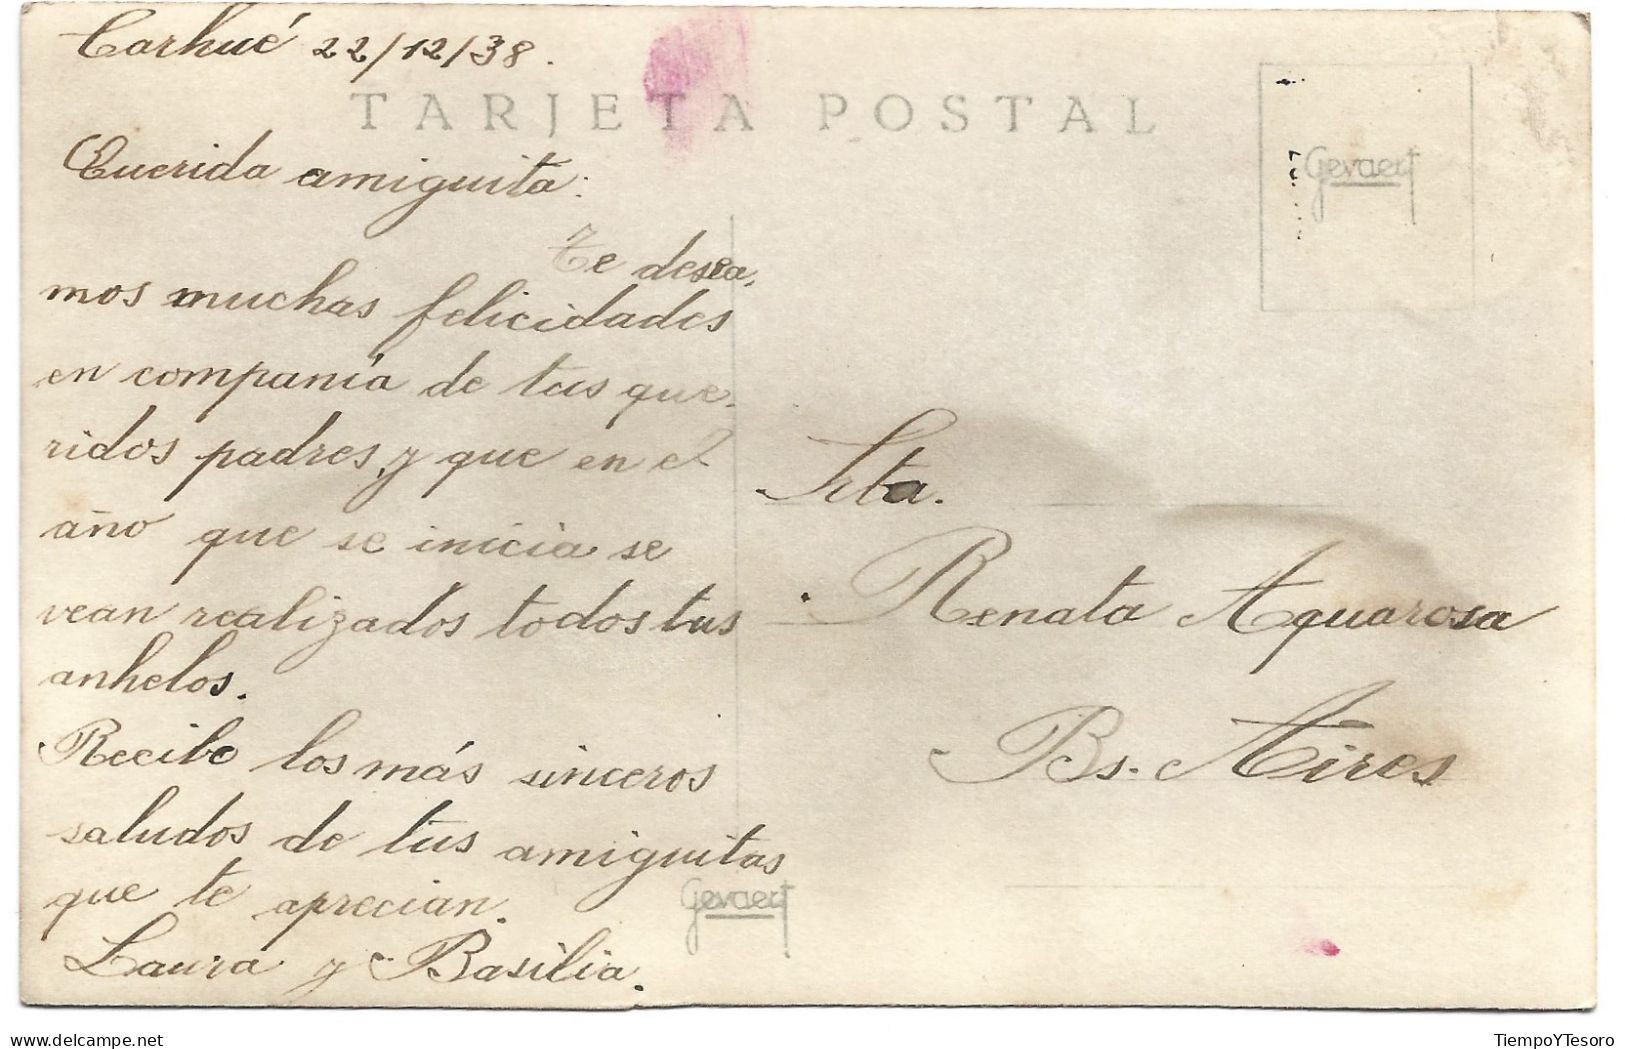 Carhué 22/12/38.
TARJETA POSTAL
Gevaert
Querida amiguita:
Te desea-
mos muchas felicidades
en companía de tus que-
ridos padres, y que en el
año que se inicia se
vean realizados todos tus
anhelos.
Recibe los más sinceros
saludos de tus amiguitas
que te aprecian.
Laura y Basilia.
Gevaert
Srta.
Renata Aquarosa
Bs. Aires
TiempoYTesoro
delcampe.net